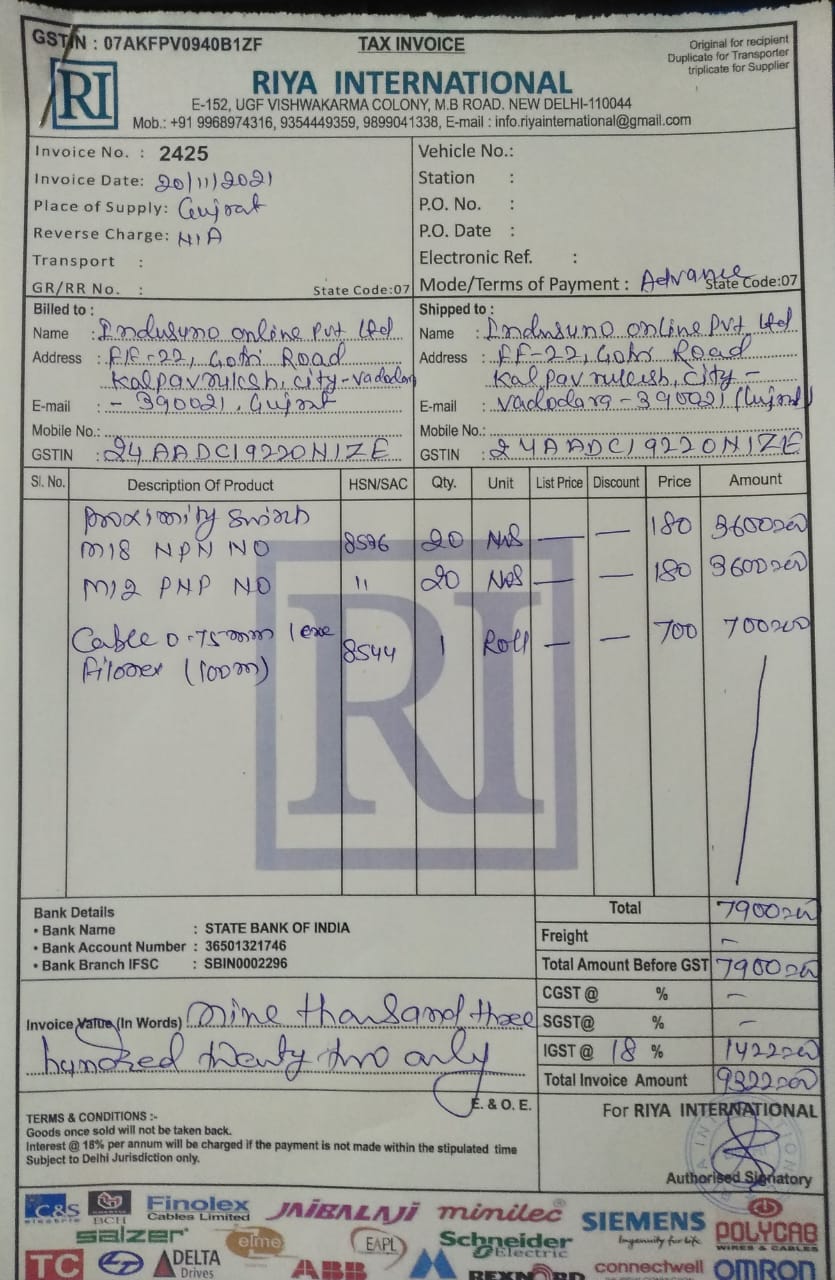 GSTIN : 07AKFPV0940B1ZF
TAX INVOICE
Original for recipient
Duplicate for Transporter
triplicate for Supplier
RI
RIYA INTERNATIONAL
E-152, UGF VISHWAKARMA COLONY, M.B ROAD. NEW DELHI-110044
Mob.: +91 9968974316, 9354449359, 9899041338, E-mail : info.riyainternational@gmail.com
Invoice No. : 2425
Invoice Date: 20/11/2021
Place of Supply: Gujrat
Reverse Charge: N/A
Transport :
GR/RR No. : State Code:07
Vehicle No.:
Station :
P.O. No. :
P.O. Date :
Electronic Ref. :
Mode/Terms of Payment : Advance State Code:07
Billed to :
Name : Indusuno online Pvt Ltd
Address : FF-22, Gotri Road
Kalpavruksh, city-Vadodara
E-mail : - 390021, Gujrat
Mobile No.:
GSTIN : 24AADCI9220N1ZE
Shipped to :
Name : Indusuno online Pvt Ltd
Address : FF-22, Gotri Road
Kalpavruksh, city -
E-mail : Vadodara-390021 (Gujrat)
Mobile No.:
GSTIN : 24AADCI9220N1ZE
Sl. No. Description Of Product HSN/SAC Qty. Unit List Price Discount Price Amount
Proximity Switch
M18 NPN NO 8536 20 Nos — — 180 3600=00
M12 PNP NO 11 20 Nos — — 180 3600=00
Cable 0.75mm 1 core 8544 1 Roll — — 700 700=00
(100m)
RI
Bank Details
• Bank Name : STATE BANK OF INDIA
• Bank Account Number : 36501321746
• Bank Branch IFSC : SBIN0002296
Total 7900=00
Freight -
Total Amount Before GST 7900=00
CGST @ % -
SGST@ % -
IGST @ 18 % 1422=00
Total Invoice Amount 9322=00
Invoice Value (In Words) Nine thousand three
hundred twenty two only
E. & O. E.
TERMS & CONDITIONS :-
Goods once sold will not be taken back.
Interest @ 18% per annum will be charged if the payment is not made within the stipulated time
Subject to Delhi Jurisdiction only.
For RIYA INTERNATIONAL
Authorised Signatory
C&S electric BCH Finolex Cables Limited JAIBALAJI minilec SIEMENS Ingenuity for life POLYCAB WIRES & CABLES
salzer elme EAPL Schneider Electric
TC DELTA Drives ABB REXNORD connectwell OMRON